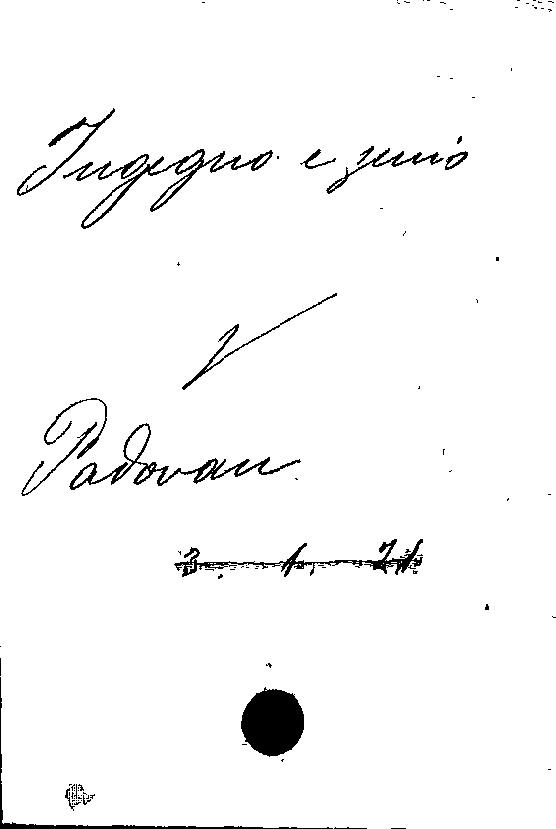 Ingegno e genio
v
Padovan
3. 1. 21